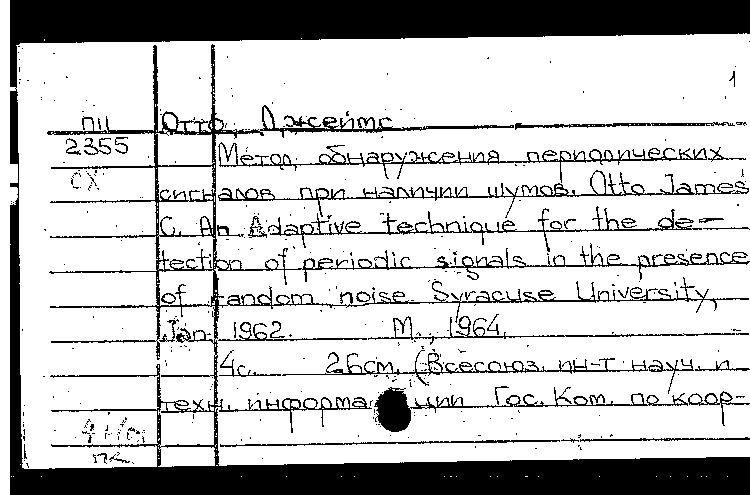 1
ПЦ Отто, Джеймс
2355 Метод обнаружения периодических
сх сигналов при наличии шумов. Otto James
C. An Adaptive technique for the de-
tection of periodic signals in the presence
of random noise. Syracuse University,
Jan. 1962. М., 1964.
4с. 26см. (Всесоюз. ин-т науч. и
техн. информации Гос. Ком. по коор-